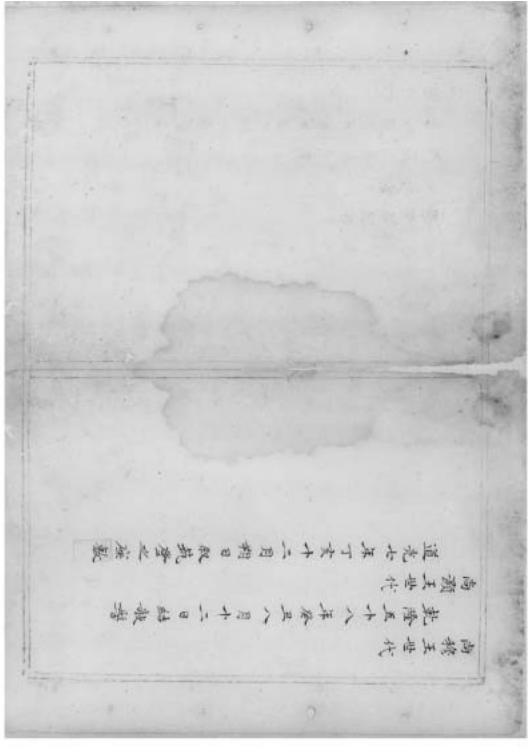 尚穆王世代
乾隆五十八年癸丑八月十二日結欹髻
尚灝王世代
道光七年丁亥十二月朔日敘筑登之座敷